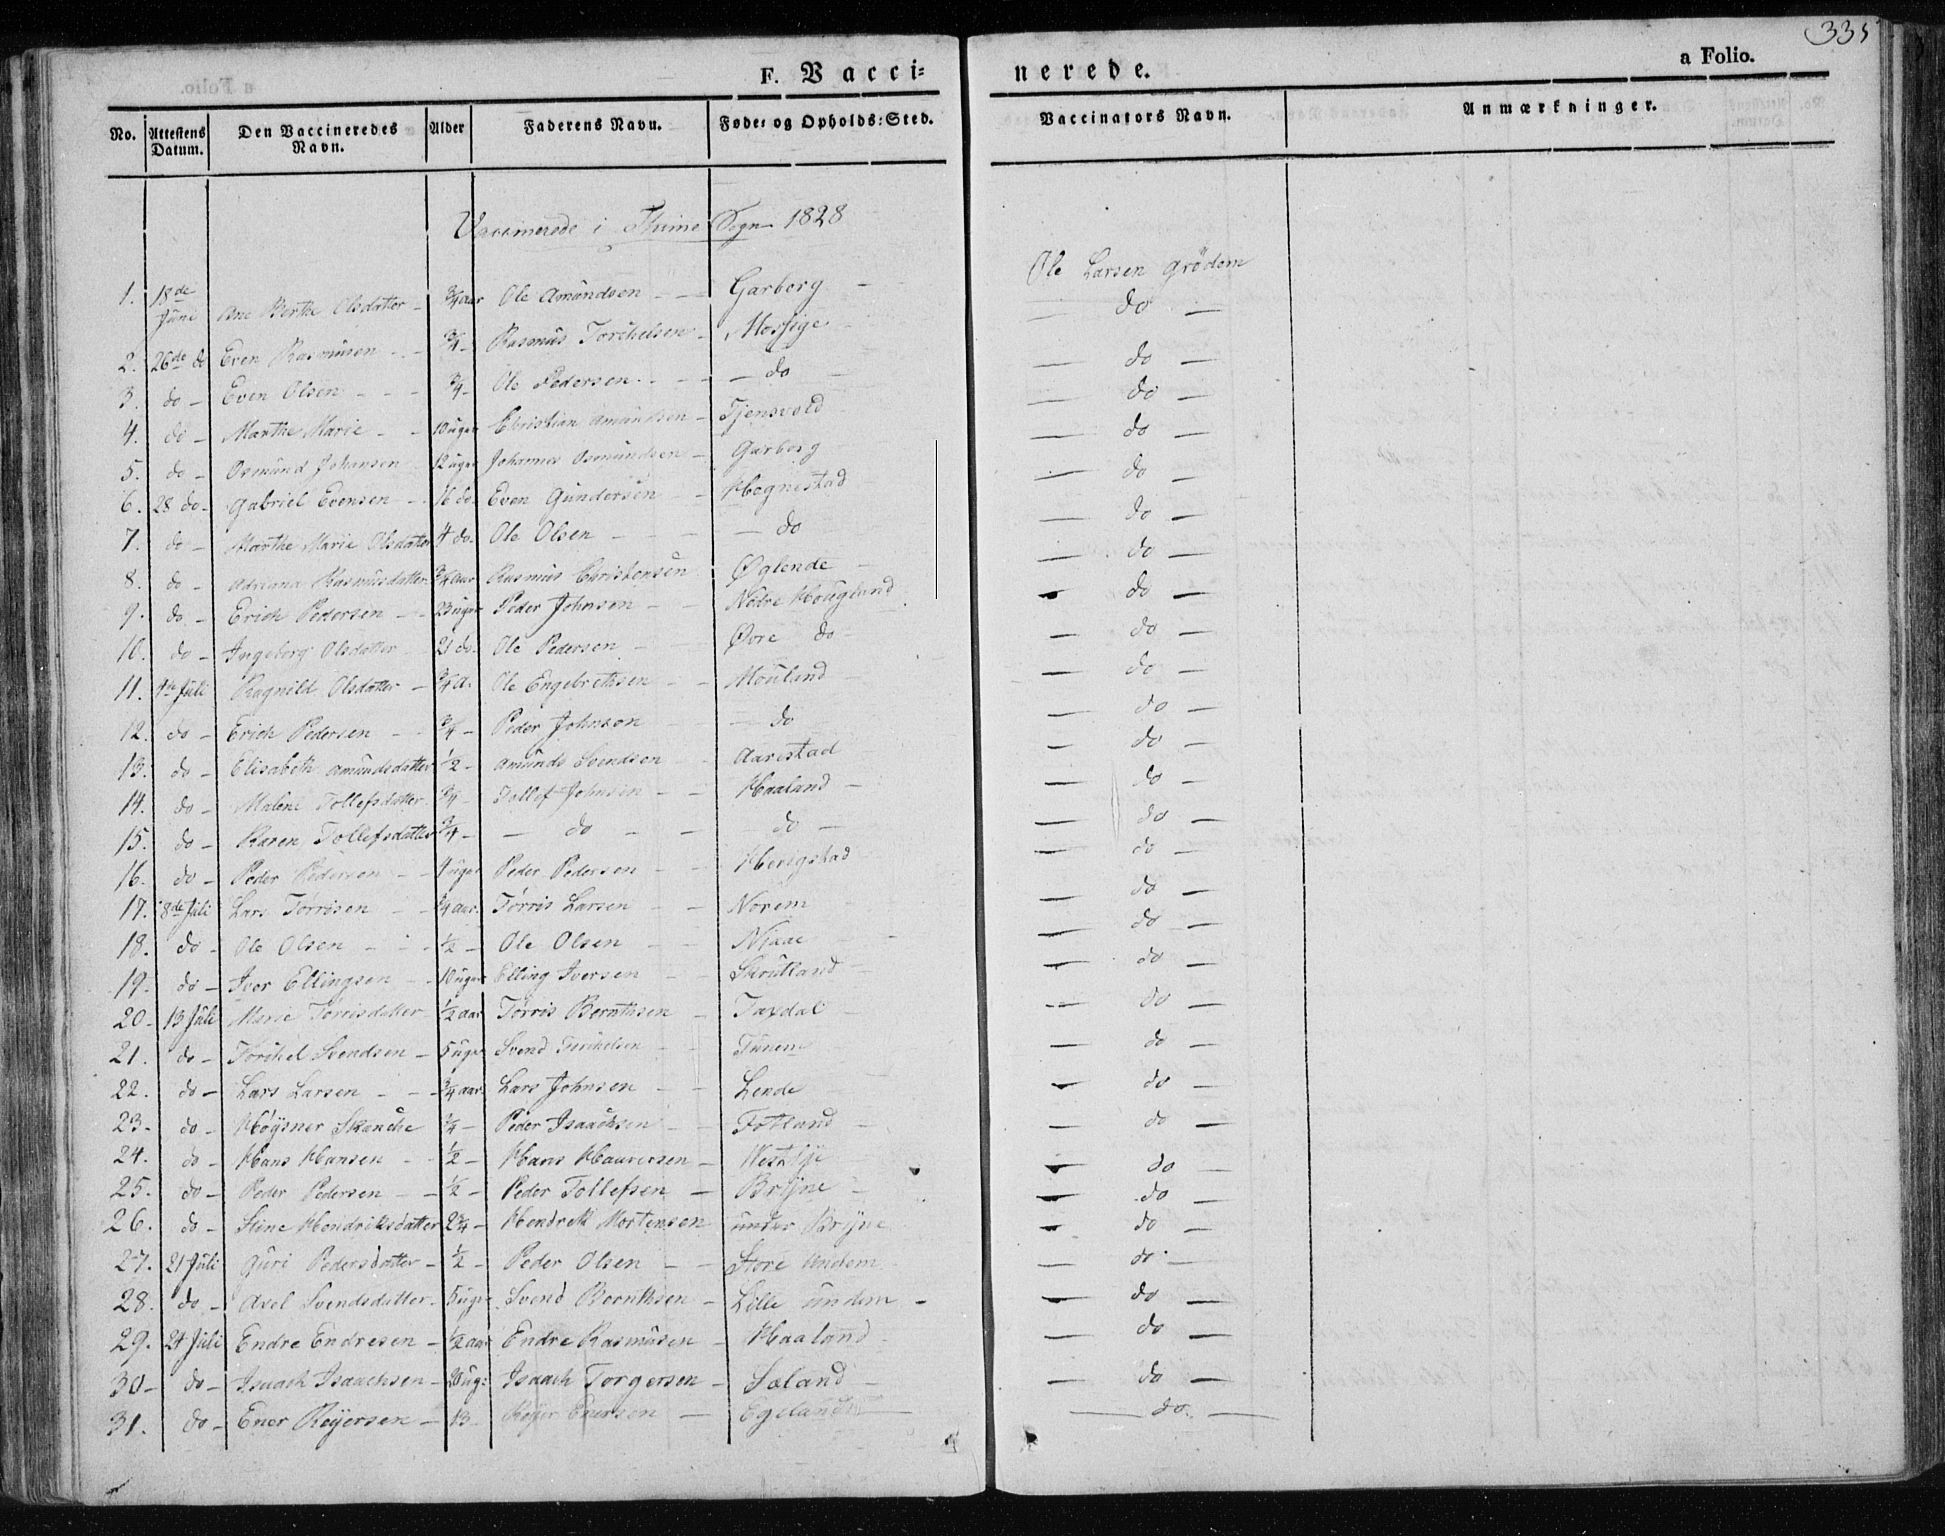 335
F. Vaccinerede. a Folio.
No. Attestens Datum. Den Vaccineredes Navn. Alder Faderens Navn. Føde= og Opholds=Sted. Vaccinators Navn. Anmærkninger.
Vaccinerede i Thime Sogn 1828
1. 18de Juni Ane Berthe Olsdatter - 3/4 aar Ole Amundsen - - Garborg - Ole Larsen Grødem
2. 26de do Even Rasmusen - - 3/4 - Rasmus Torchelsen - Mossige - do -
3. do - Even Olsen - - - 3/4 - Ole Pedersen - - - do - do -
4. do - Marthe Marie - - 10 uger Christian Amundsen - Tjensvold - do -
5. do - Osmund Johansen 12 uger Johannes Osmundsen - Garborg - do -
6. 28 do - Gabriel Evensen - 16 do. Even Gundersen - - Hognestad - do -
7. do - Marthe Marie Olsdatter 4 do. Ole Olsen - - - - do - do -
8. do - Adriana Rasmusdatter 3/4 aar Rasmus Christensen Øglende - do -
9. do - Erich Pedersen - - 23 uger Peder Johnsen - - Nedre Hougland - do -
10. do - Ingeborg Olsdatter - 21 do. Ole Pedersen - Øvre do - - do -
11. 4de Juli Ragnild Olsdatter - 3/4 a. Ole Engebrethsen - - Mouland - do -
12. do - Erich Pedersen - - 3/4 - Peder Johnson - do - do -
13. do - Elisabeth Amundsdatter 1/2 - Amunds Svendsen - Aarestad - do -
14. do - Malene Tollefsdatter 3/4 - Tollef Johnsen - - Haaland - - do -
15. do - Karen Tollefsdatter 3/4 - - do - - do - - do -
16. do - Peder Pedersen - - 4 uger Peder Pedersen - - Herigstad - do -
17. 8de Juli Lars Torrisen - - 3/4 aar. Tørris Larsen - - Norem - do -
18. do - Ole Olsen - - - 1/2 - Ole Olsen - - Njaae - - do -
19. do - Iver Ellingsen - - 10 uger Elling Iversen - - Skrutland - - do -
20 - 13 Juli Marie Torrisdatter 1/2 aar Tørris Bernthsen - Taxdal - - do -
21. do - Torchel Svendsen - 5 uger Svend Torchelsen - Tunem - do -
22. do - Lars Larsen - - - 3/4 aar. Lars Johnsen - - Lende - do -
23. do - Høysner Skanche 3/4 - Peder Isaachsen - - Fotland - - do -
24. do - Hans Hansen - - 1/2 - Hans Haaversen - Westlye - do -
25. do - Peder Pedersen - - 1/2 - Peder Tollefsen - Bryne - - do -
26. do - Stine Hendriksdatter 2 3/4 - Hendrik Mortensen under Bryne - do -
27. 21 Juli Guri Pedersdatter - 1/2 - Peder Olsen - - Store Undem - do -
28. do - Axel Svendsdatter. 5 uger Svend Bernthsen - Lille Undem - - do -
29. 24 Juli Endre Endresen - 1/2 aar Endre Rasmusen - Haaland - - do -
30 - do - Isaach Isaachsen - 20 ug: Isaach Torgersen - Sæland - - do -
31. do - Ener Reyersen - 13. Reyer Enersen - Egeland - - do. -
- do -